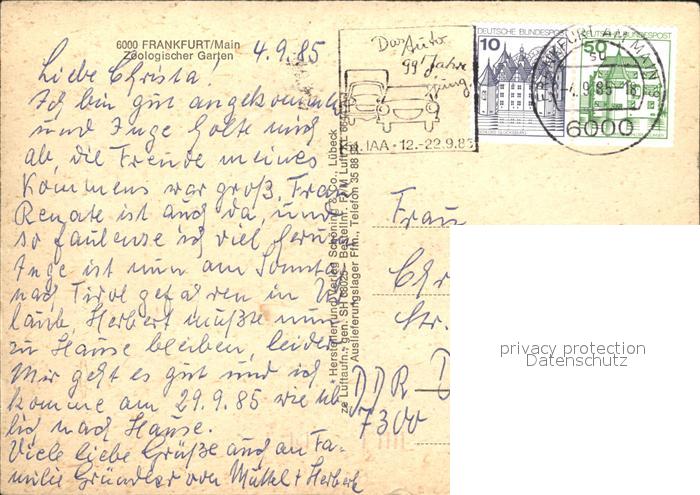 6000 FRANKFURT/Main
Zoologischer Garten
4.9.85
Liebe Christa!
Ich bin gut angekommen
und Inge holte mich
ab, die Freude meines
Kommens war groß, Frau
Renate ist auch da, und
so faulenze ich viel herum
Inge ist nun am Sonntag
nach Tirol gefahren in Ur
laub, Herbert mußte nun
zu Hause bleiben, leider
Mir geht es gut und ich
komme am 29.9.85 wie üb
lich nach Hause.
Viele liebe Grüße auch an Fa-
milie Gründler von Muttel + Herbert
Herstellung und Verlag Schöning & Co., Lübeck
ze Luftaufn.: gen. SH 68025 – Bestellnr. F/M Luft KL
Auslieferungslager Ffm., Telefon 35 88
Das Auto
99 Jahre
jung
IAA · 12.-22.9.85
DEUTSCHE BUNDESPOST
10
DEUTSCHE BUNDESPOST
50
FRANKFURT AM MAIN
-4.9.85-18
6000
Frau
Chr
Str.
DDR
7300
privacy protection
Datenschutz